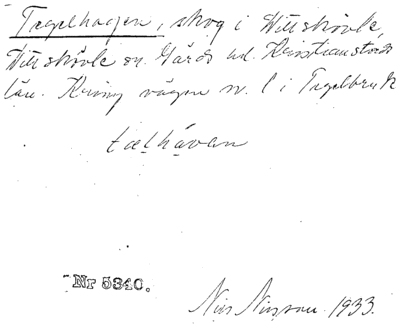 Tegelhagen, skog i Vittskövle,
Vittskövle sn. Gärds hd. Kristianstads
län. Kring vägen n. l i Tegelbruk
tælhávan
Nr 5340.
Nils Nilsson 1933.